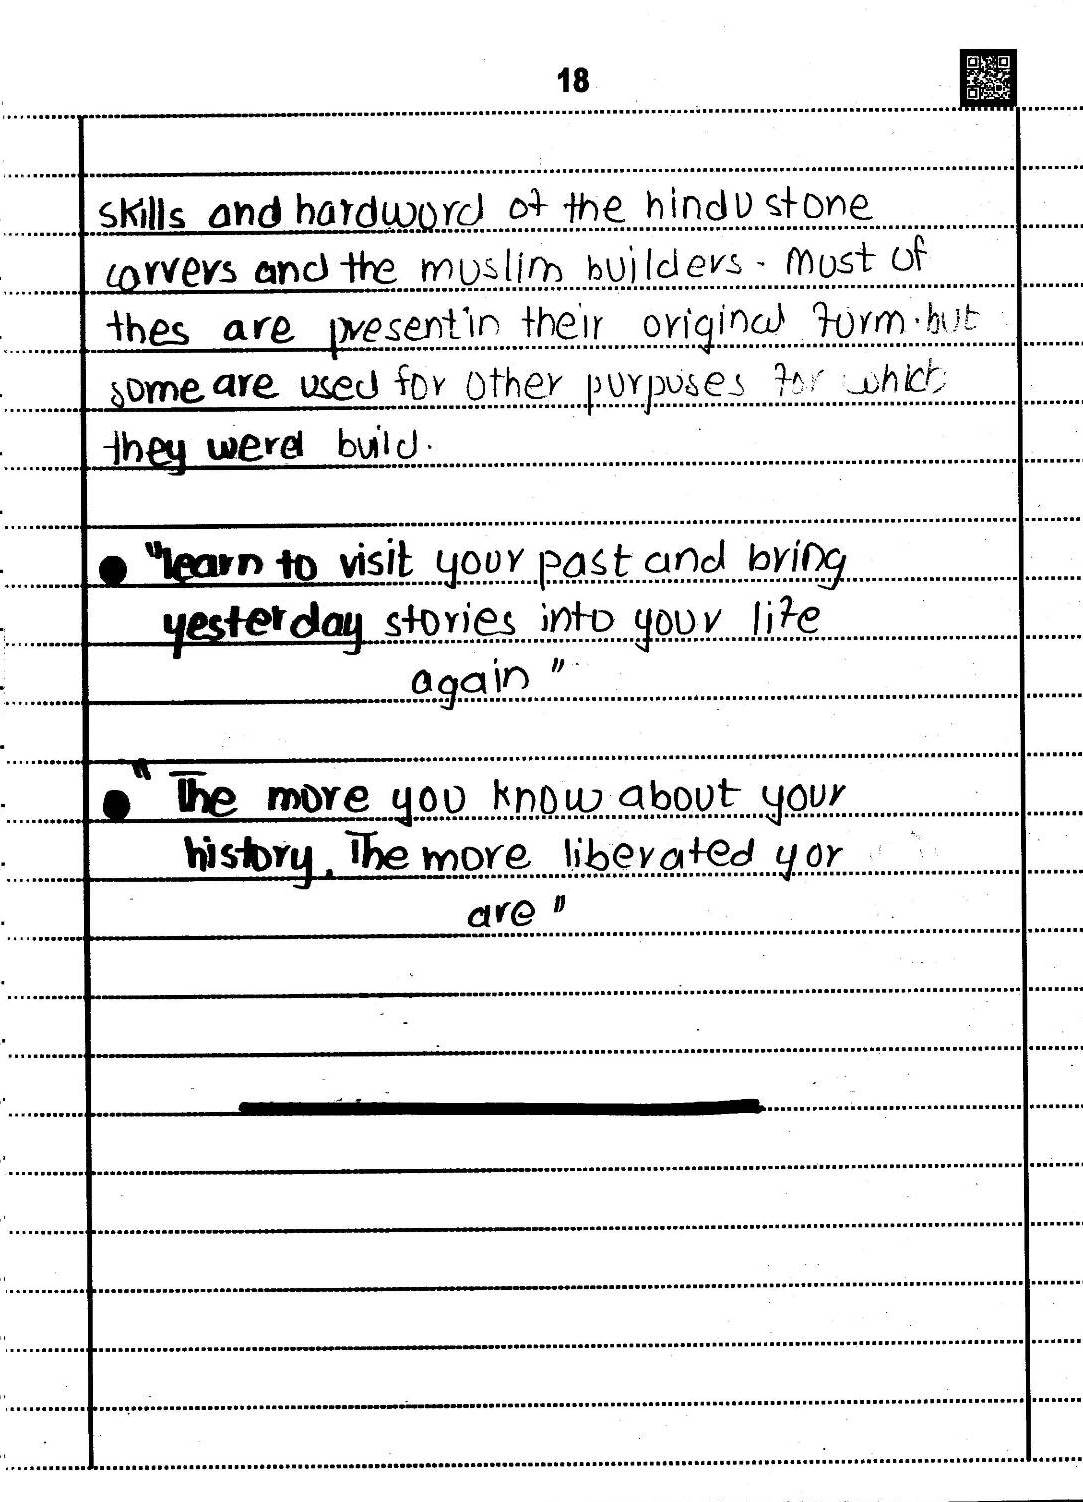 18
skills and hardword of the hindu stone
carvers and the muslim builders. Most of
thes are present in their original form. but
some are used for other purpuses for which
they wered build.
● "learn to visit your past and bring
yesterday stories into your life
again"
● "The more you know about your
history. The more liberated yor
are"